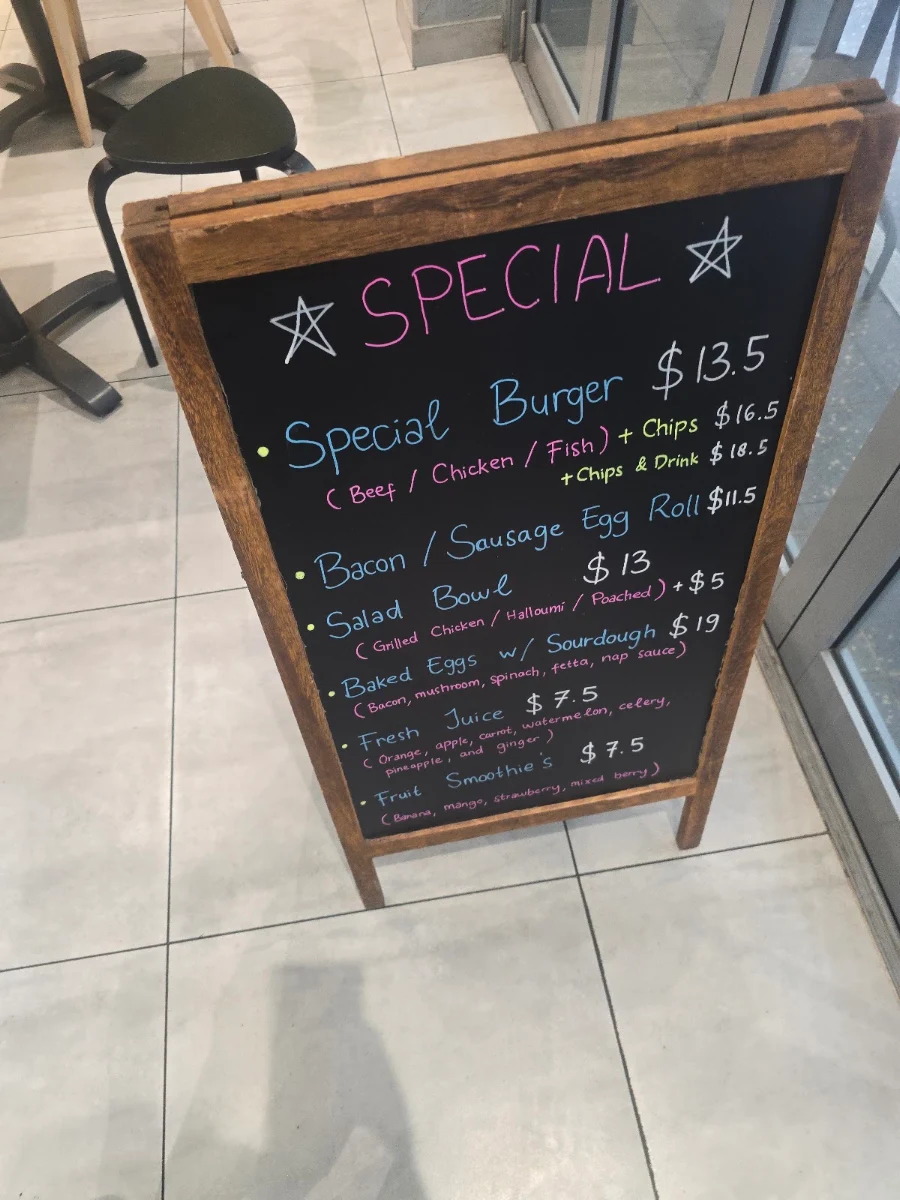 SPECIAL
• Special Burger $13.5
(Beef / Chicken / Fish) + Chips $16.5
+ Chips & Drink $18.5
• Bacon / Sausage Egg Roll $11.5
• Salad Bowl $13
(Grilled Chicken / Halloumi / Poached) + $5
• Baked Eggs w/ Sourdough $19
(Bacon, mushroom, spinach, fetta, nap sauce)
• Fresh Juice $7.5
(Orange, apple, carrot, watermelon, celery,
pineapple, and ginger)
• Fruit Smoothie's $7.5
(Banana, mango, strawberry, mixed berry)